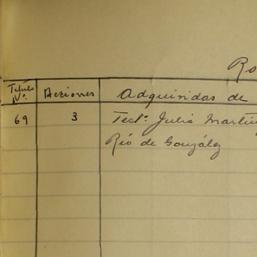 Ro
Título
Nº. Acciones Adquiridas de
69 3 Tect. Julia Martín
Río de González